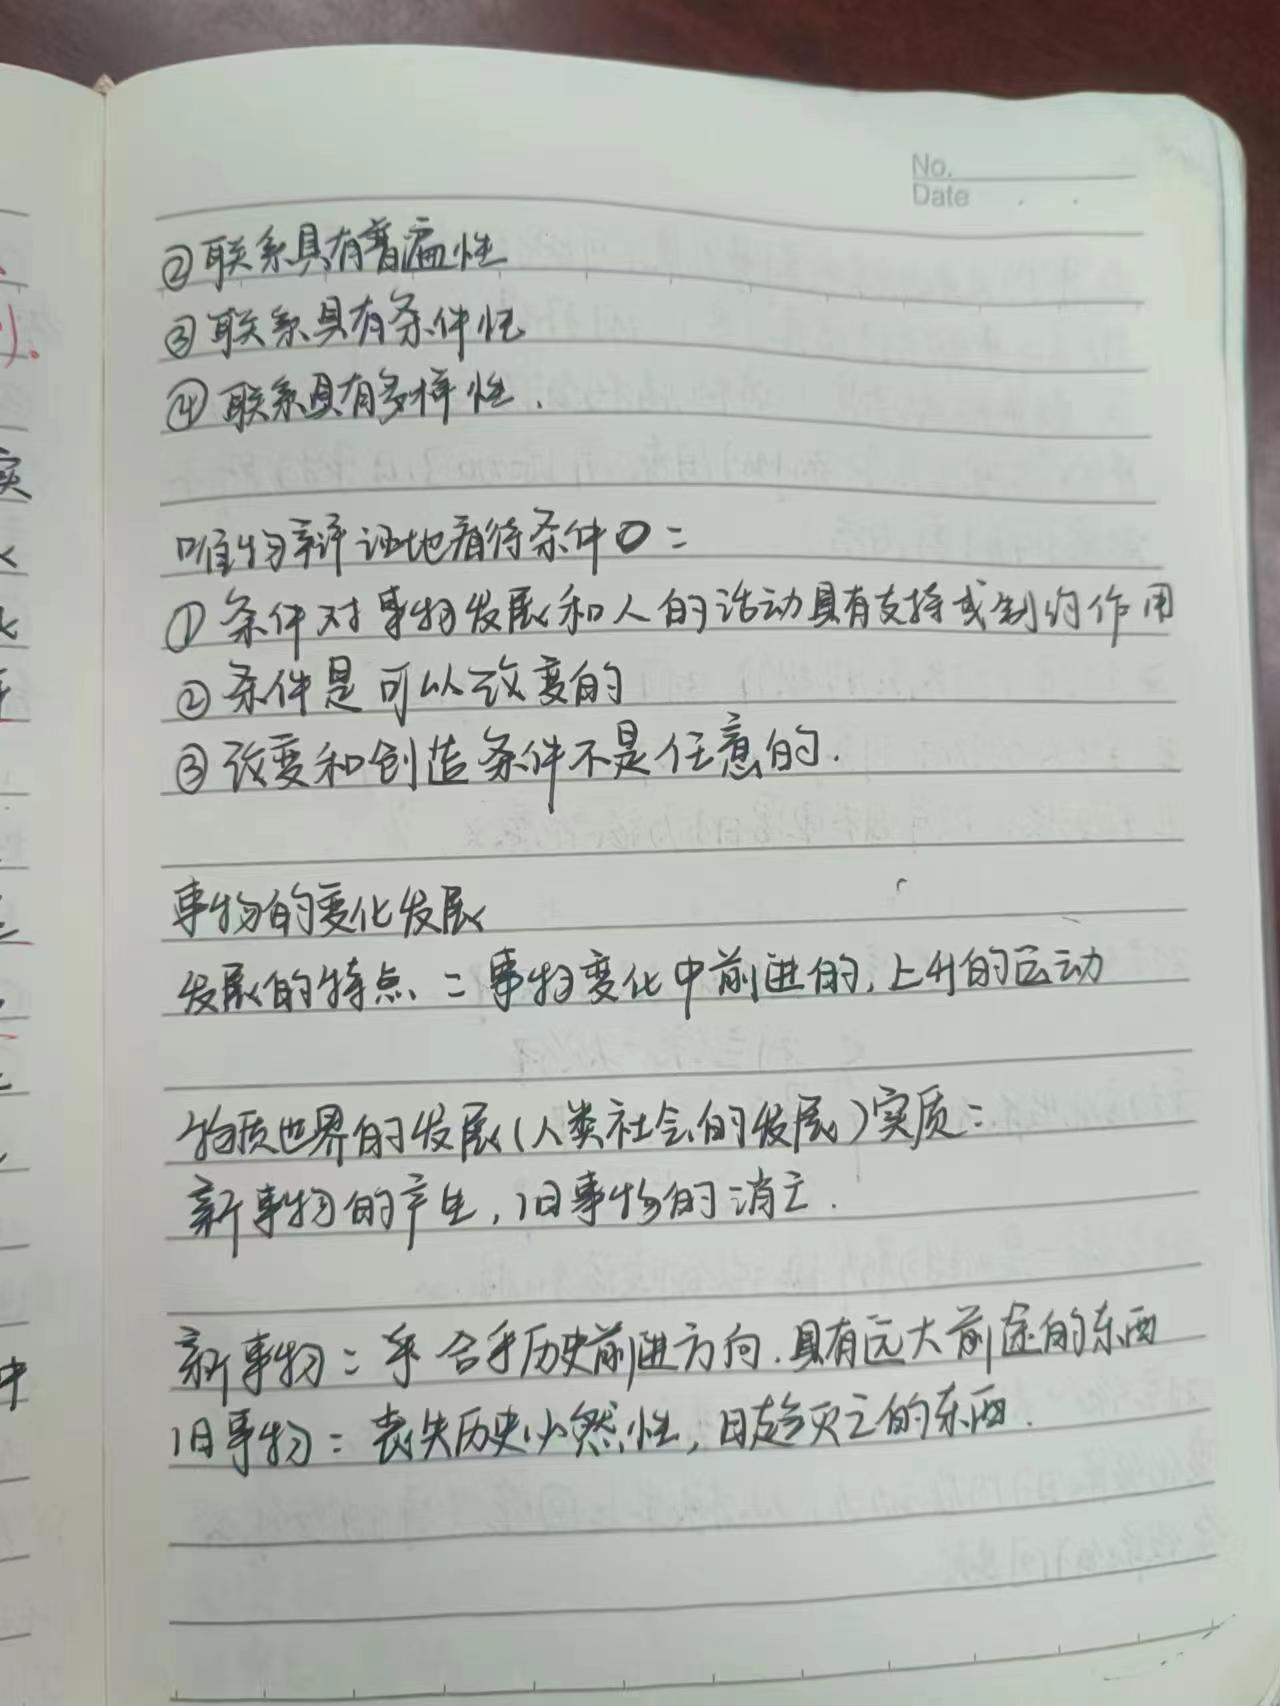 No.
Date
②联系具有普遍性
③联系具有条件性
④联系具有多样性.
唯物辩证地看待条件:
①条件对事物发展和人的活动具有支持或制约作用
②条件是可以改变的
③改变和创造条件不是任意的.
事物的变化发展
发展的特点:事物变化中前进的,上升的运动
物质世界的发展(人类社会的发展)实质:
新事物的产生,旧事物的消亡.
新事物:乎合乎历史前进方向.具有远大前途的东西
旧事物:丧失历史必然性,日趋灭亡的东西.